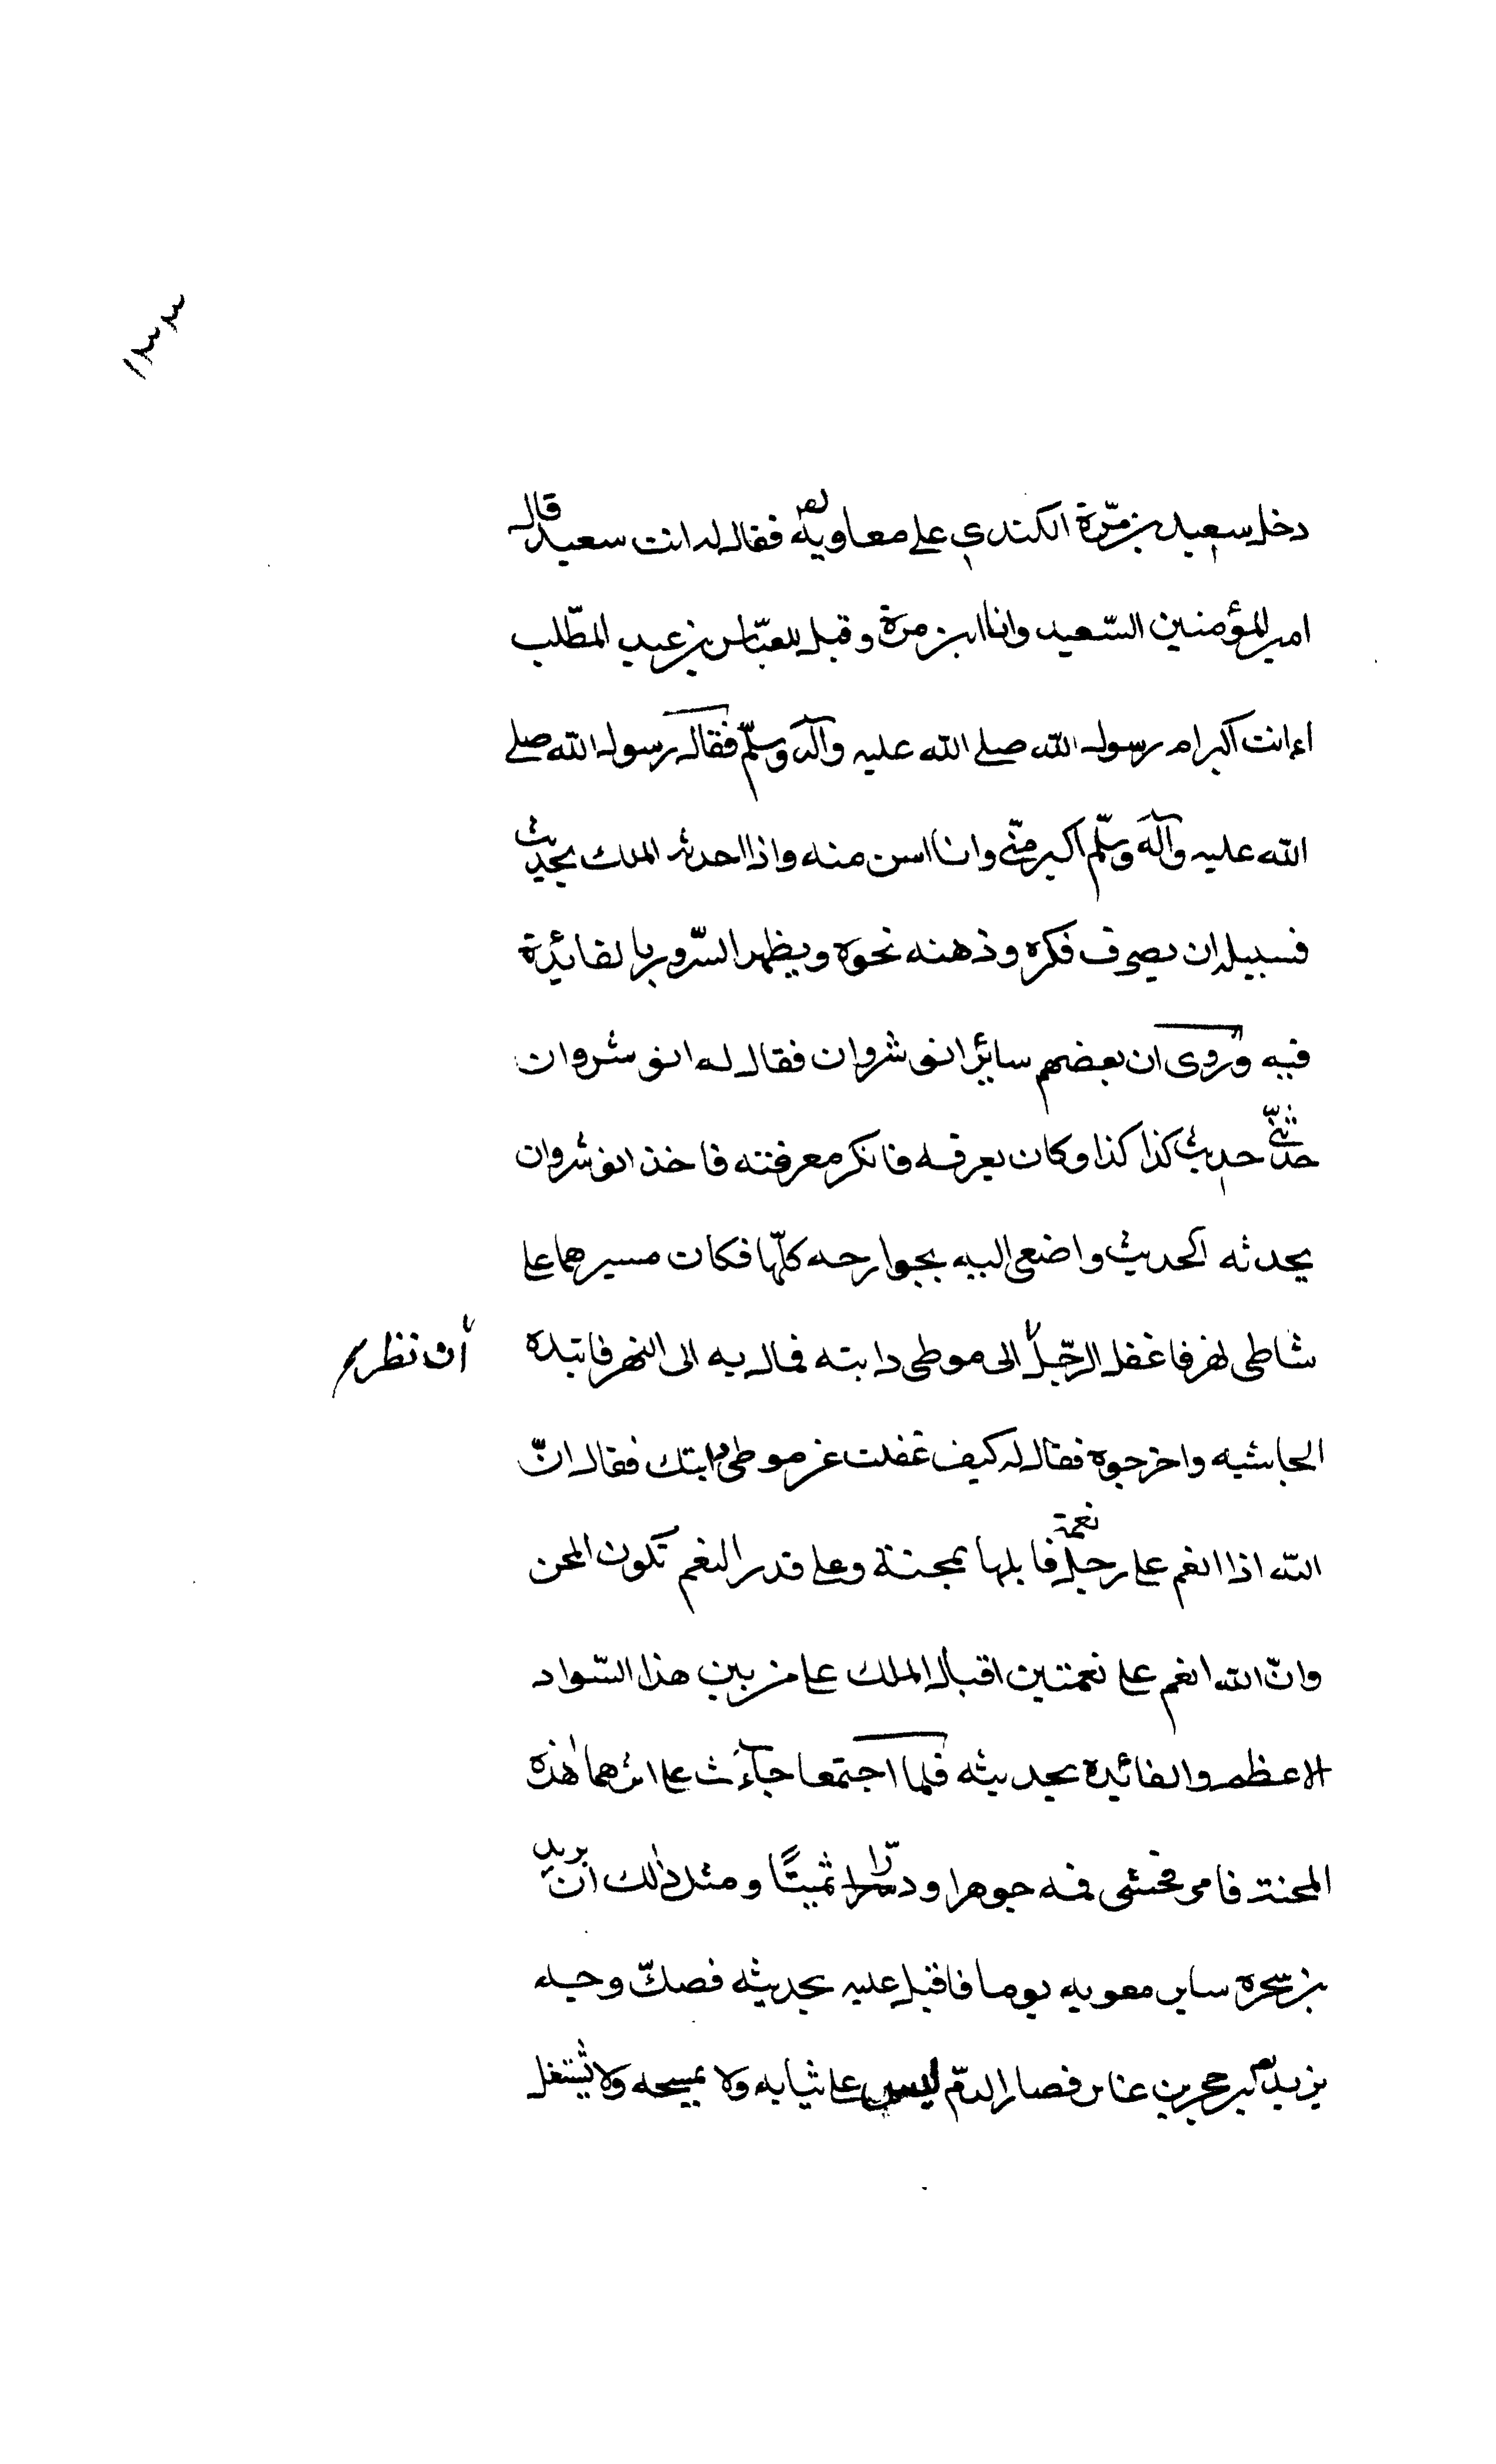 ١٣٣
دخل سعيد بن مرّة الكندي على معاوية فقال له انت سعيد قال
امير المؤمنين السّعيد وانا ابن مرة وقيل للعبّاس بن عبد المطّلب
اءانت اكبر ام رسول الله صلى الله عليه وآله وسلّم فقال رسول الله صلى
الله عليه وآله وسلّم اكبر منّي وانا اسن منه واذا احدث الملك بحديث
فسبيله ان يصرف فكره وذهنه نحوه ويظهر السّرور بالفائدة
فيه وروى ان بعضهم ساير انوشروان فقال له انوشروان
حدّثني حديث كذا كذا وكان يعرفه فانكر معرفته فاخذ انوشروان
يحدثه الحديث واضغى اليه بجوارحه كلّها فكان مسيرهما على
شاطى نهر فاغفل الرّجل الى موطى دابته فمال به الى النهر فابتدة
أن نظر
الحاشيه واخرجوه فقال له كيف غفلت عن موطى دابتك فقال انّ
الله اذا انعم على رجل نعمة قابلها بمحنة وعلى قدر النعم تكون المحن
وانّ الله انعم على نعمتين اقبال الملك على من بين هذا السّواد
الاعظم والفائدة بحديثه فلما اجتمعا جآءَت على اثرهما هٰذه
المحنة فامر فحشى فمه جوهرا ودرّا ثمينًا ومثل ذٰلك انّ يزيد
بن سحره ساير معويه يوما فاقبل عليه بحديثه فصكّ وجه
يزيد حجر عاير فصار الدمّ يسيل على ثيابه ولا يمسحه ولا يشتغل